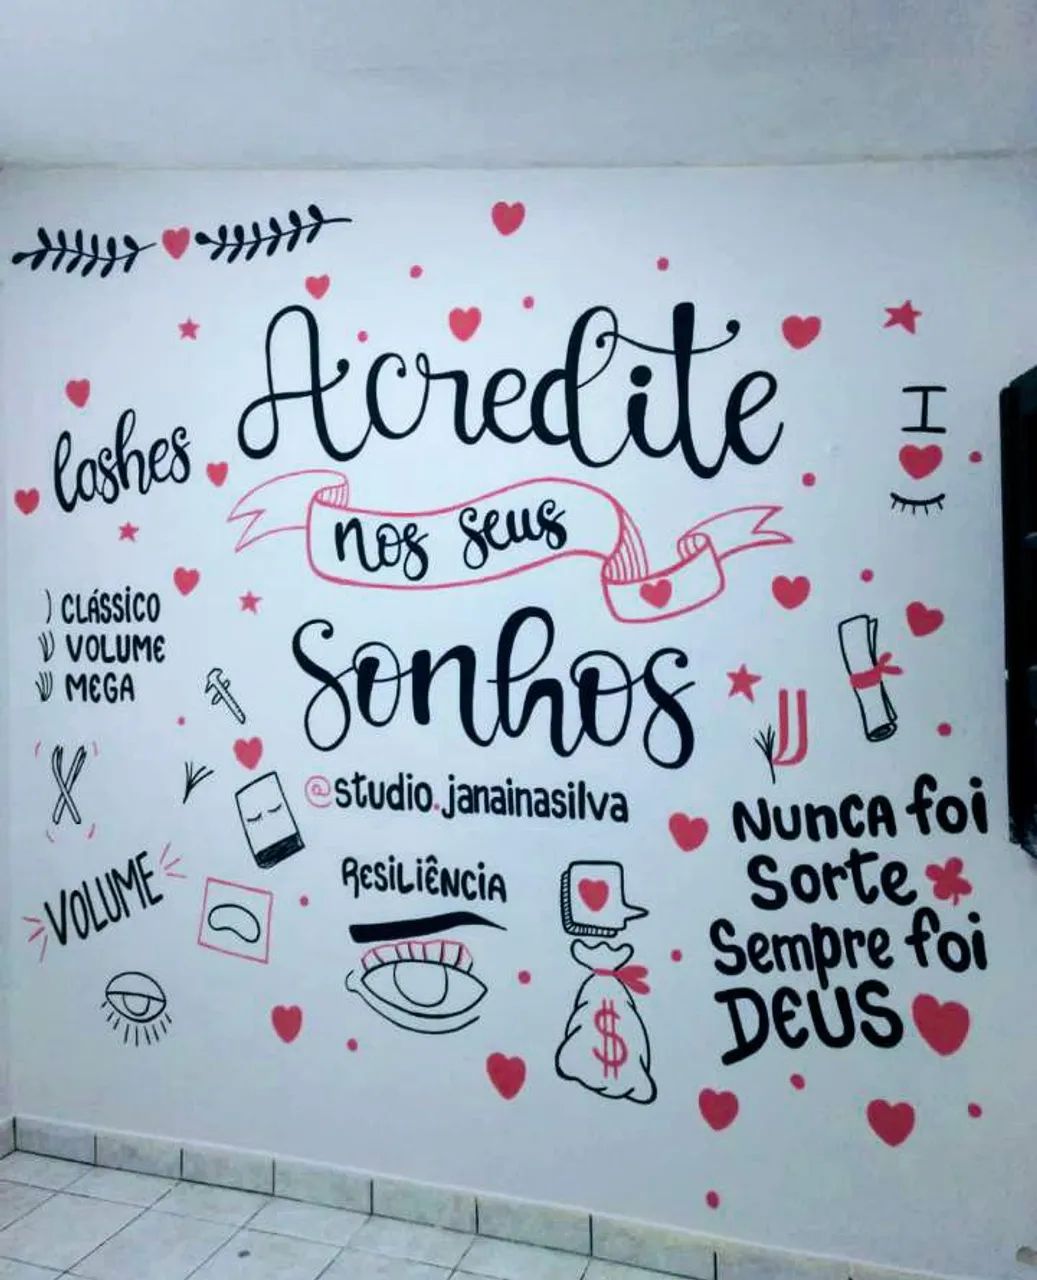 Acredite
nos seus
Sonhos
@studio.janainasilva
lashes
CLÁSSICO
VOLUME
MEGA
VOLUME
RESILIÊNCIA
$
I
NUNCA foi
Sorte
Sempre foi
DEUS